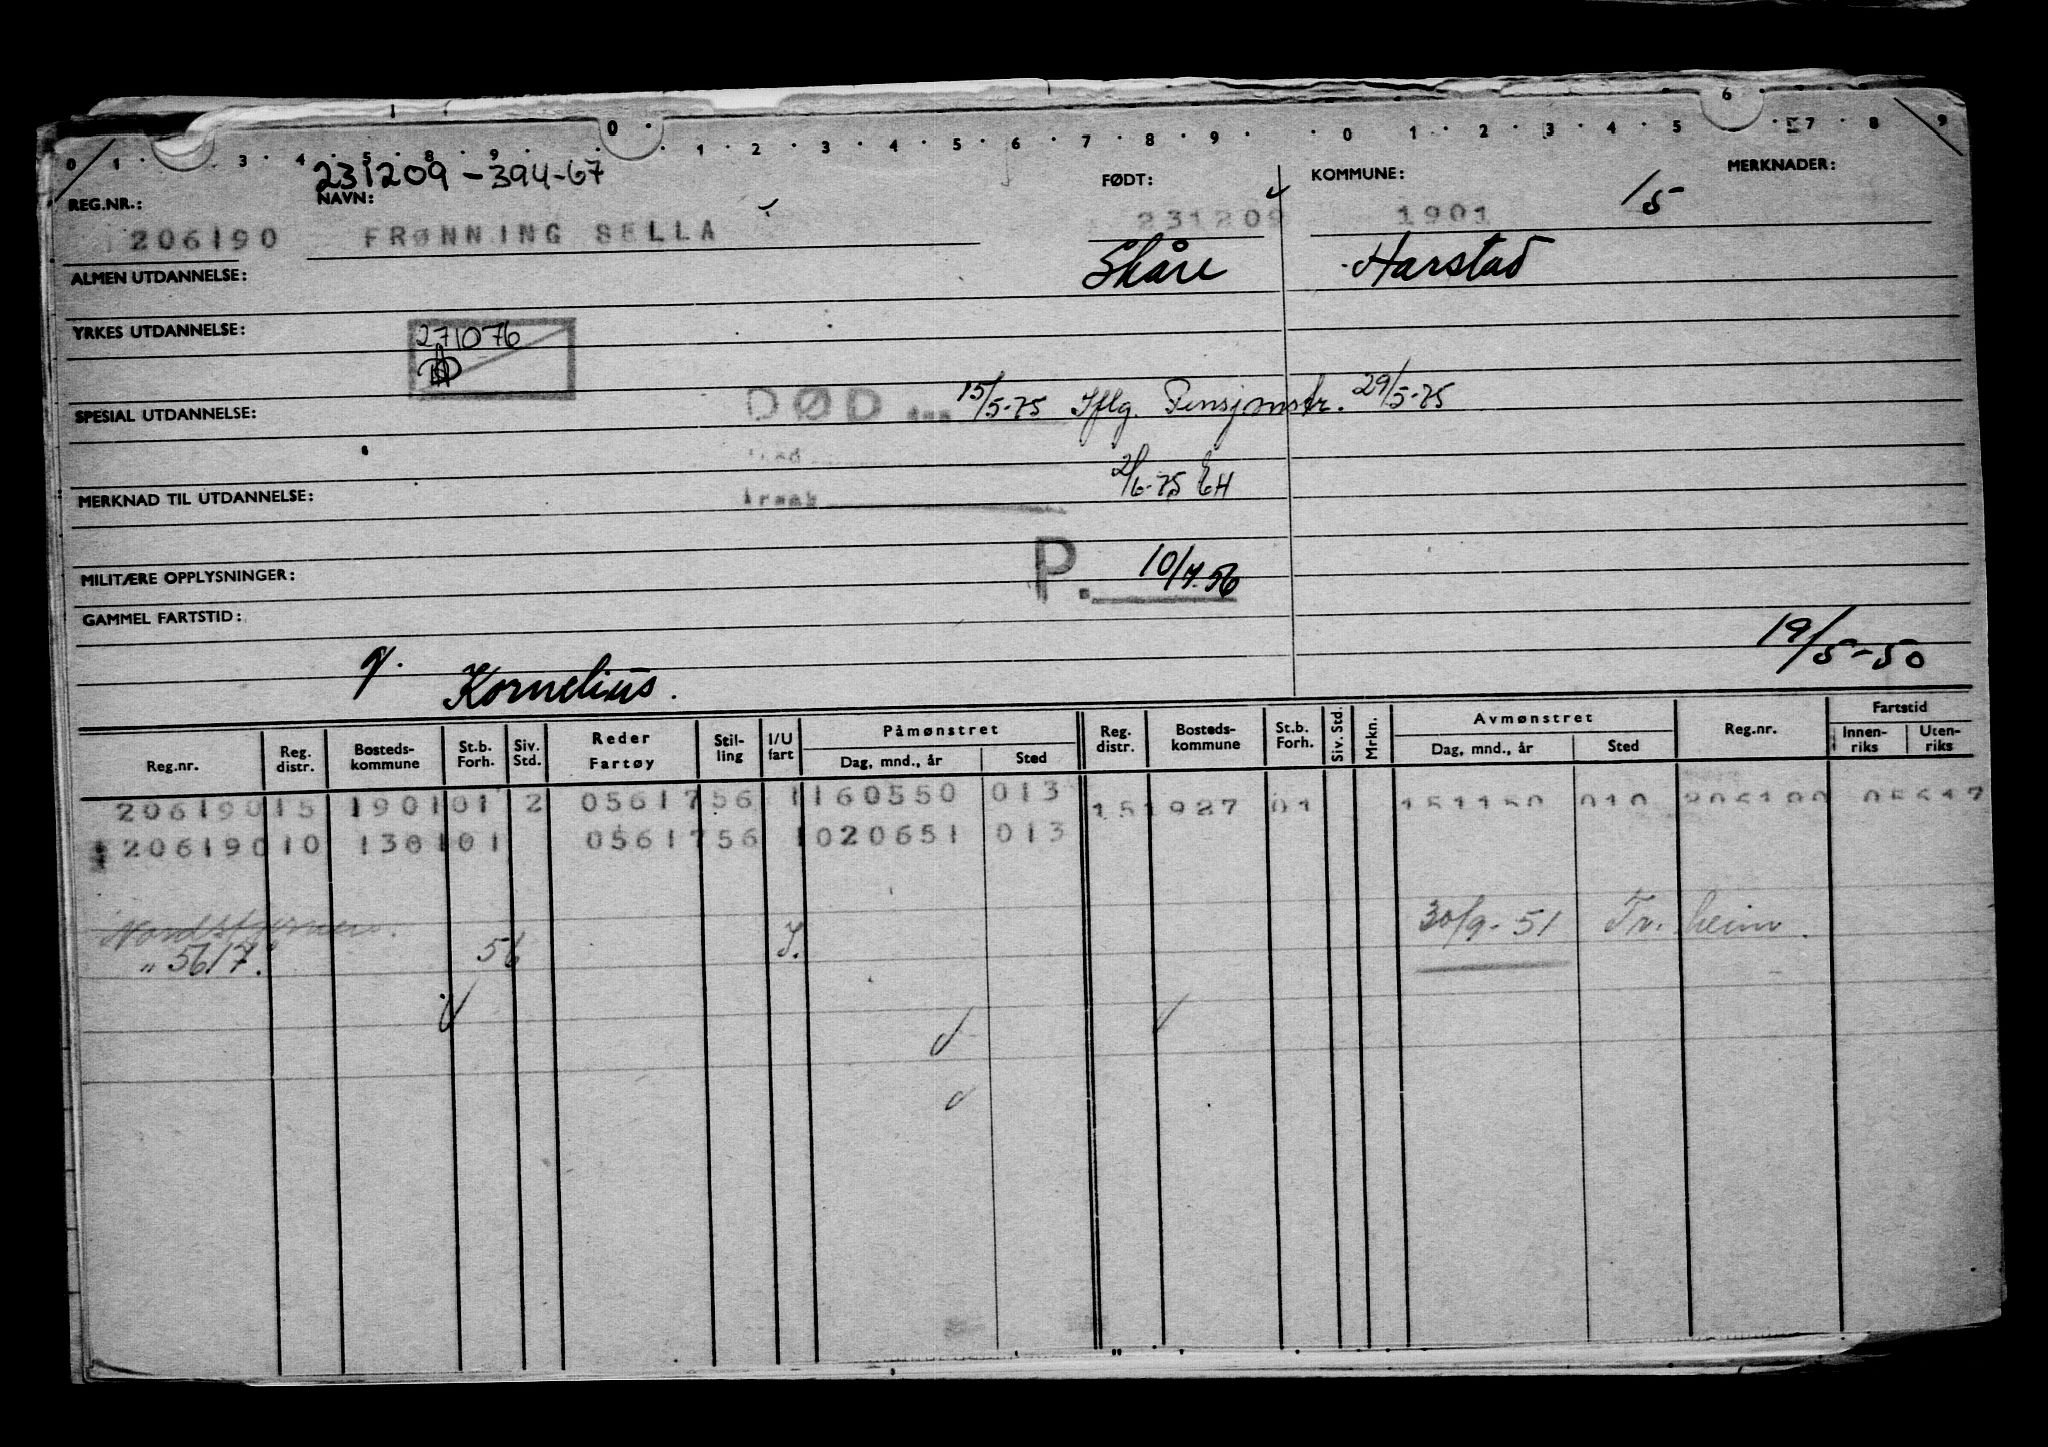 0 1 · 3 · 4 · 5 · 8 · 9 · 0 · 1 · 2 · 3 · 4 · 5 · 6 · 7 · 8 · 9 · 0 · 1 · 2 · 3 · 4 · 5 6 · 7 · 8 · 9
231209 - 394-67
REG.NR.: NAVN: FØDT: KOMMUNE: MERKNADER:
206190 FRØNNING SELLA 231209 1901 15
ALMEN UTDANNELSE: Skåre Harstad
YRKES UTDANNELSE: 271076
SPESIAL UTDANNELSE: DØD den 15/5-75 Iflg. Pensjonstr. 29/5-75
MERKNAD TIL UTDANNELSE: årsak 2/6-75 EH
MILITÆRE OPPLYSNINGER: P. 10/7.56
GAMMEL FARTSTID:
19/5-50
g. Kornelius.
Reg.nr. Reg. distr. Bosteds- kommune St.b. Forh. Siv. Std. Reder Fartøy Stil- ling I/U fart Påmønstret Dag, mnd., år Sted Reg. distr. Bosteds- kommune St.b. Forh. Siv. Std. Mrkn. Avmønstret Dag, mnd., år Sted Reg.nr. Fartstid Innen- riks Uten- riks
206190 15 1901 01 2 05617 56 1 160550 013 15 1927 01 151150 010 206190 05617
206190 10 1301 01 05617 56 1 020651 013
Nordstjernen. 30/9-51 Tr.heim.
" 5617. 56 I.